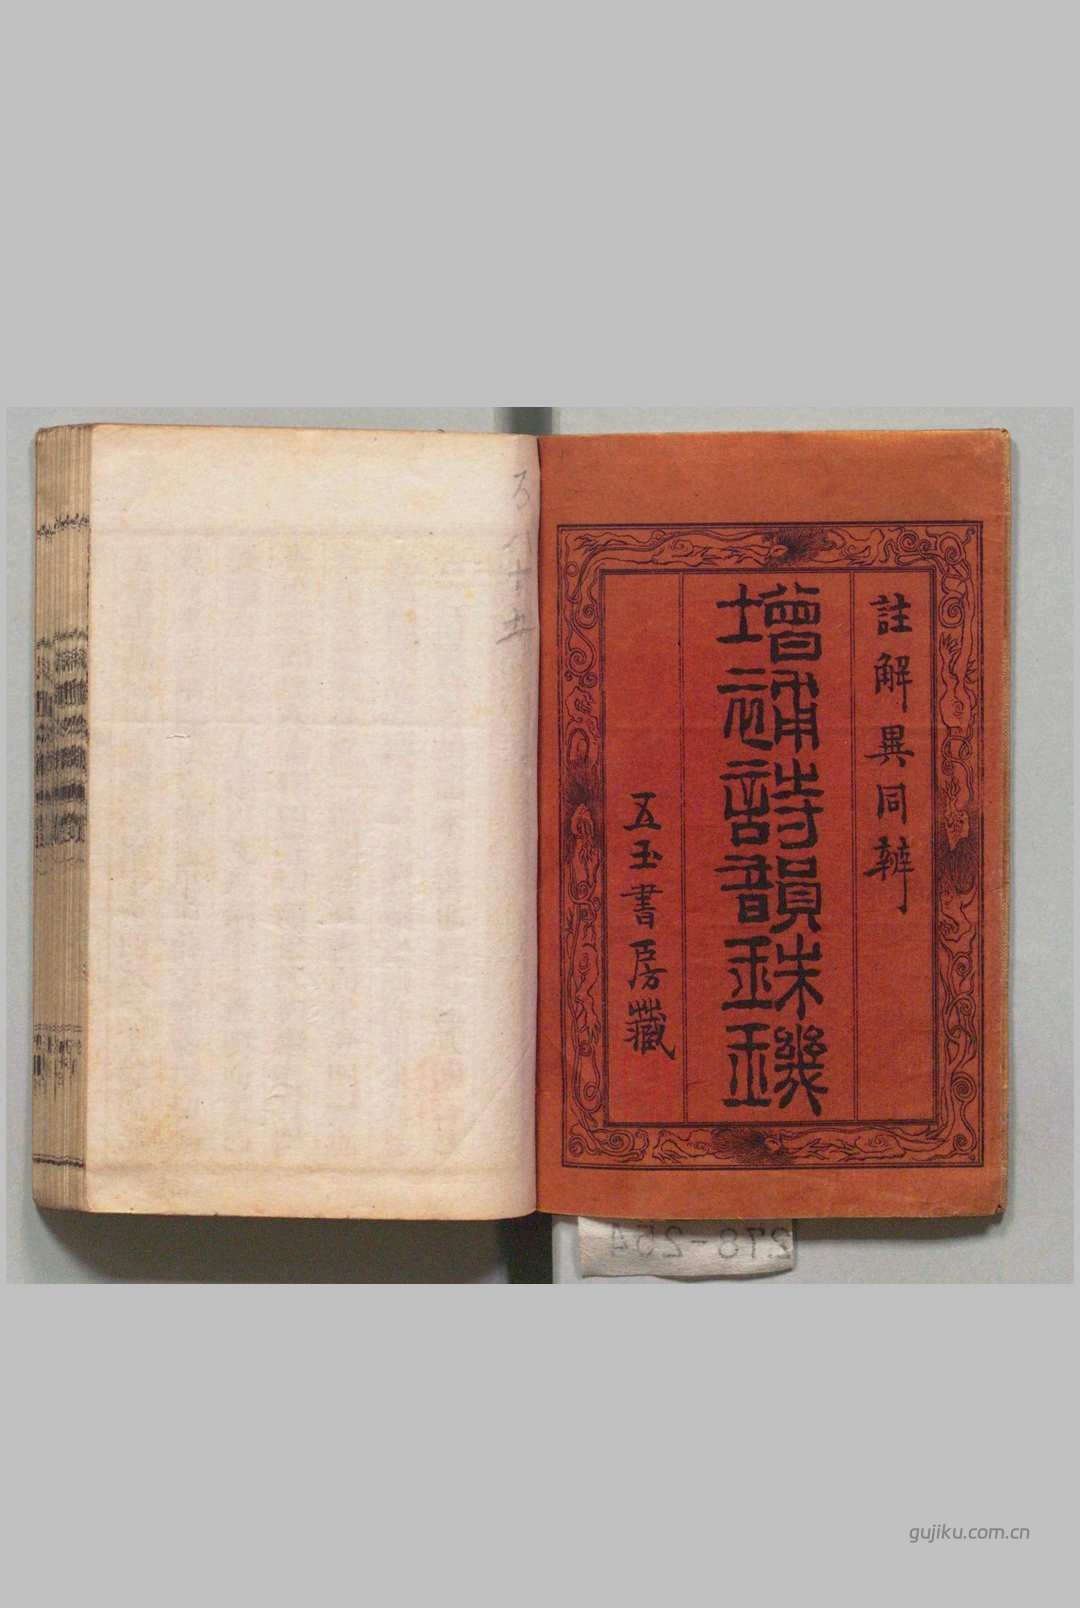 註解異同辦
增補詩韻珠璣
五玉書房藏
278-254
gujiku.com.cn